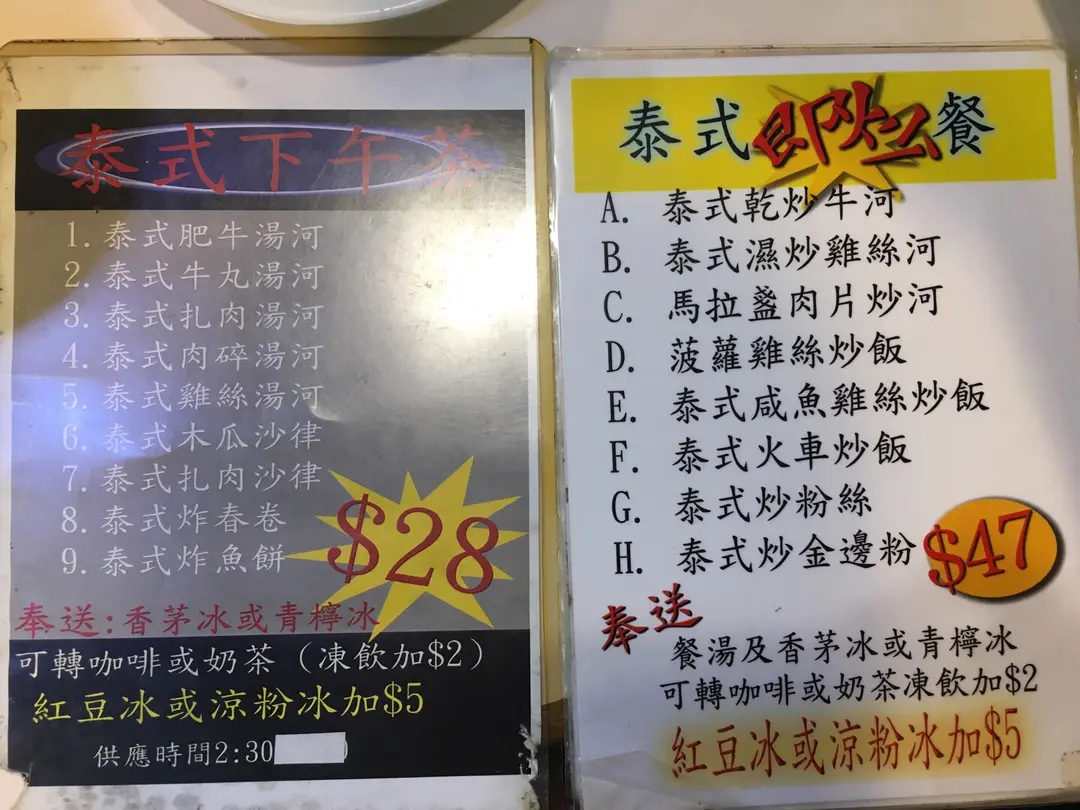 泰式下午茶
1. 泰式肥牛湯河
2. 泰式牛丸湯河
3. 泰式扎肉湯河
4. 泰式肉碎湯河
5. 泰式雞絲湯河
6. 泰式木瓜沙律
7. 泰式扎肉沙律
8. 泰式炸春卷
9. 泰式炸魚餅
$28
奉送:香茅冰或青檸冰
可轉咖啡或奶茶（凍飲加$2）
紅豆冰或涼粉冰加$5
供應時間2:30
泰式即炒餐
A. 泰式乾炒牛河
B. 泰式濕炒雞絲河
C. 馬拉盞肉片炒河
D. 菠蘿雞絲炒飯
E. 泰式咸魚雞絲炒飯
F. 泰式火車炒飯
G. 泰式炒粉絲
H. 泰式炒金邊粉
$47
奉送
餐湯及香茅冰或青檸冰
可轉咖啡或奶茶凍飲加$2
紅豆冰或涼粉冰加$5